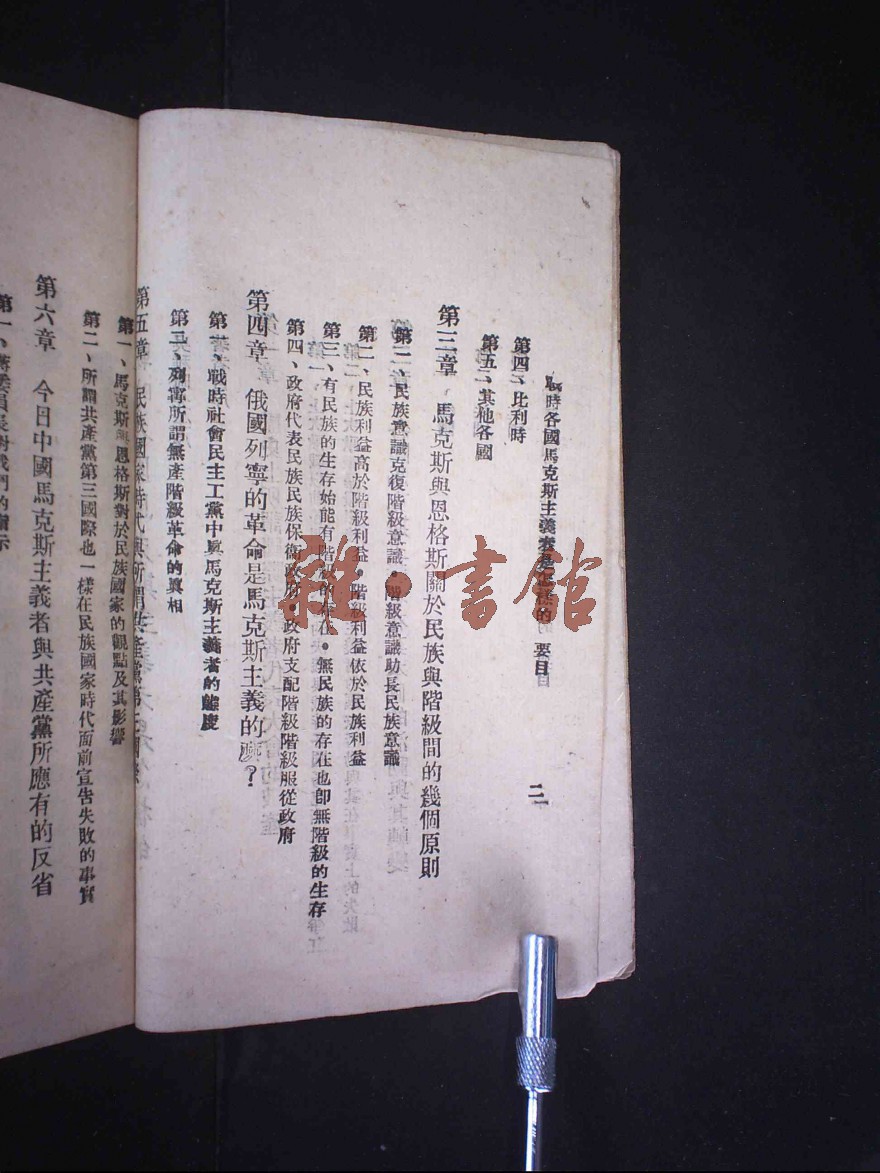 戰時各國馬克斯主義者是怎樣的 要目
二
第四、比利時
第五、其他各國
第三章 馬克斯與恩格斯關於民族與階級間的幾個原則
第一、民族意識克復階級意識・階級意識助長民族意識
第二、民族利益高於階級利益・階級利益依於民族利益
第三、有民族的生存始能有階級的存在・無民族的存在也卽無階級的生存
第四、政府代表民族民族保衛政府・政府支配階級階級服從政府
第四章 俄國列寧的革命是馬克斯主義的麽？
第一、戰時社會民主工黨中眞馬克斯主義者的態度
第二、列寧所謂無產階級革命的眞相
第五章 民族國家時代與所謂共產黨第三國際
第一、馬克斯與恩格斯對於民族國家的觀點及其影響
第二、所謂共產黨第三國際也一樣在民族國家時代面前宣告失敗的事實
第六章 今日中國馬克斯主義者與共產黨所應有的反省
第一、蔣委員長對我們的指示
雜・書館